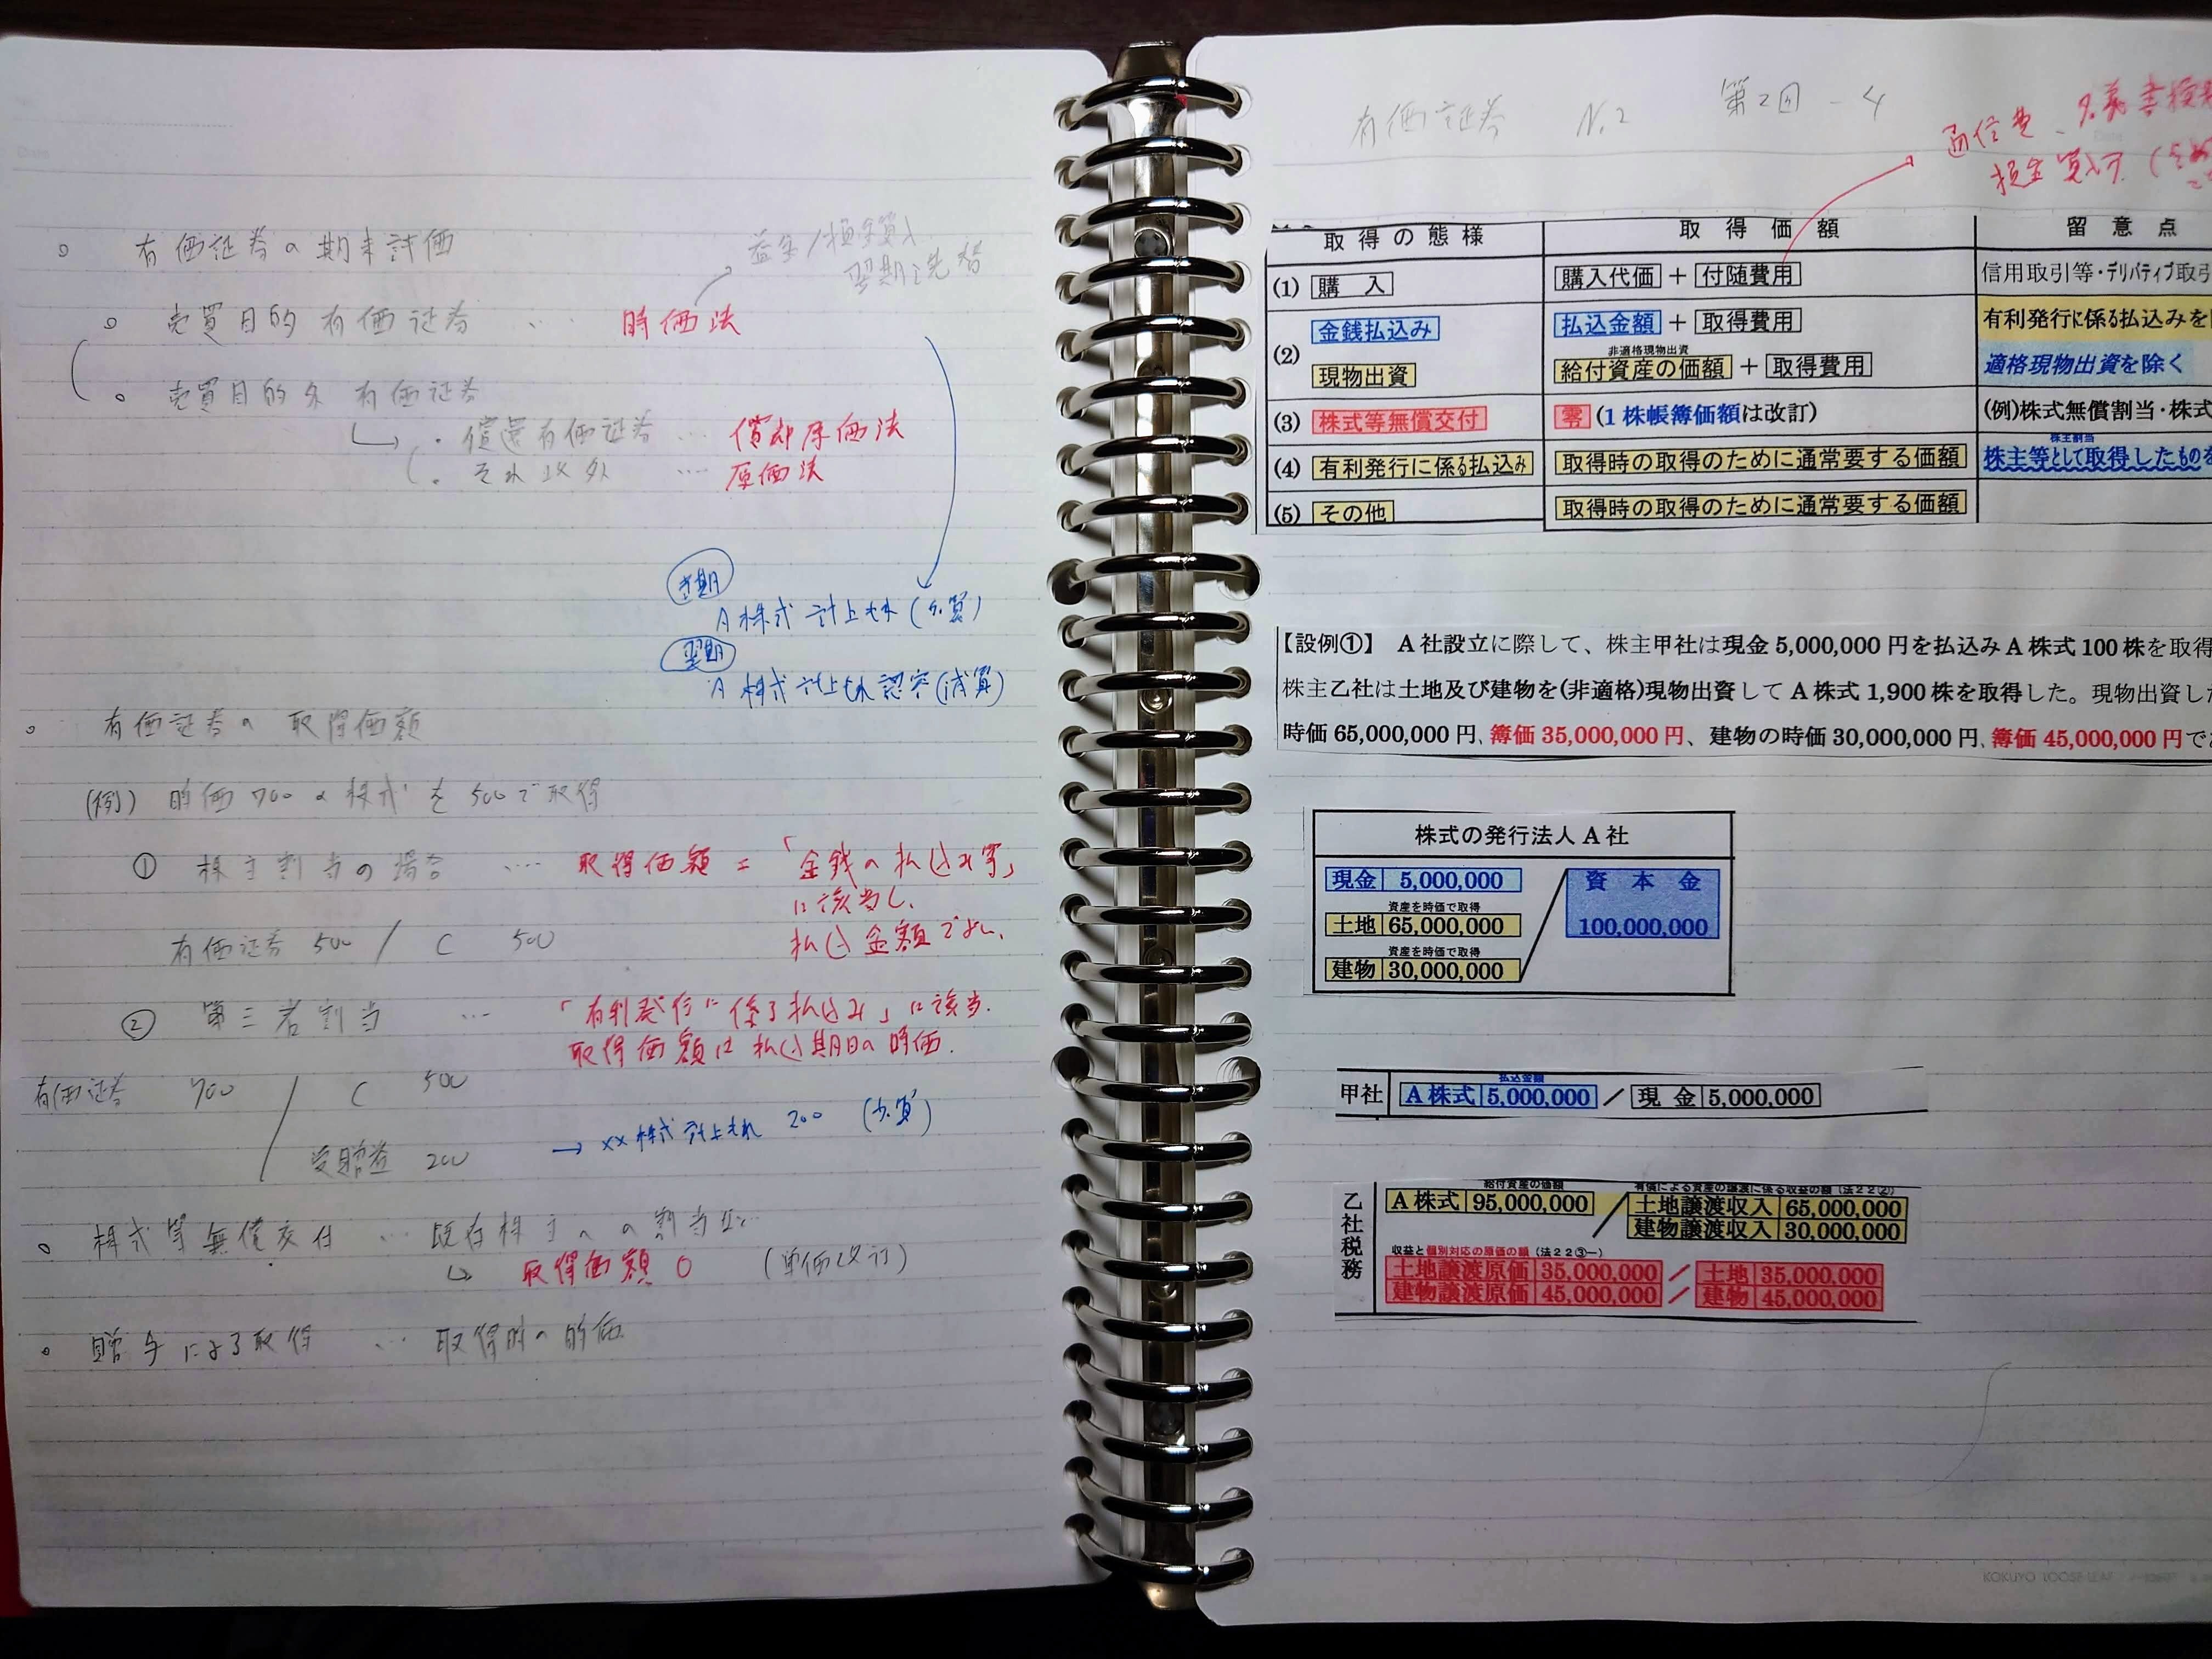 有価証券の期末評価
益金/損金算入
翌期洗替
売買目的有価証券 … 時価法
売買目的外有価証券
・償還有価証券 … 償却原価法
・それ以外 … 原価法
当期
A株式計上もれ(加算)
翌期
A株式計上もれ認容(減算)
有価証券の取得価額
(例) 時価700の株式を500で取得
① 株主割当の場合 … 取得価額=「金銭の払込み等」
に該当し、
払込金額でよい、
有価証券 500 / C 500
② 第三者割当 … 「有利発行に係る払込み」に該当.
取得価額は払込期日の時価.
有価証券 700 / C 500
受贈益 200 → ××株式計上もれ 200 (加算)
株式等無償交付 … 既存株主への割当
取得価額 0 (単価改訂)
贈与による取得 … 取得時の時価
有価証券 No.2 第2回-4
通信費、名義書換
損金算入可
取得の態様 取得価額 留意点
(1) 購入 購入代価 + 付随費用 信用取引等・デリバティブ取引
(2) 金銭払込み 払込金額 + 取得費用 有利発行に係る払込みを
非適格現物出資
現物出資 給付資産の価額 + 取得費用 適格現物出資を除く
(3) 株式等無償交付 零 (1株帳簿価額は改訂) (例)株式無償割当・株式
株主割当
(4) 有利発行に係る払込み 取得時の取得のために通常要する価額 株主等として取得したものを
(5) その他 取得時の取得のために通常要する価額
【設例①】 A社設立に際して、株主甲社は現金 5,000,000 円を払込みA株式 100 株を取得
株主乙社は土地及び建物を(非適格)現物出資してA株式 1,900 株を取得した。現物出資し
時価 65,000,000 円、簿価 35,000,000 円、建物の時価 30,000,000 円、簿価 45,000,000 円で
株式の発行法人A社
現金 5,000,000 資本金
資産を時価で取得
土地 65,000,000 100,000,000
資産を時価で取得
建物 30,000,000
払込金額
甲社 A株式 5,000,000 / 現金 5,000,000
乙社税務
給付資産の価額 有償による資産の譲渡に係る収益の額(法22②)
A株式 95,000,000 / 土地譲渡収入 65,000,000
建物譲渡収入 30,000,000
収益と個別対応の原価の額(法22③一)
土地譲渡原価 35,000,000 / 土地 35,000,000
建物譲渡原価 45,000,000 / 建物 45,000,000
KOKUYO LOOSE-LEAF